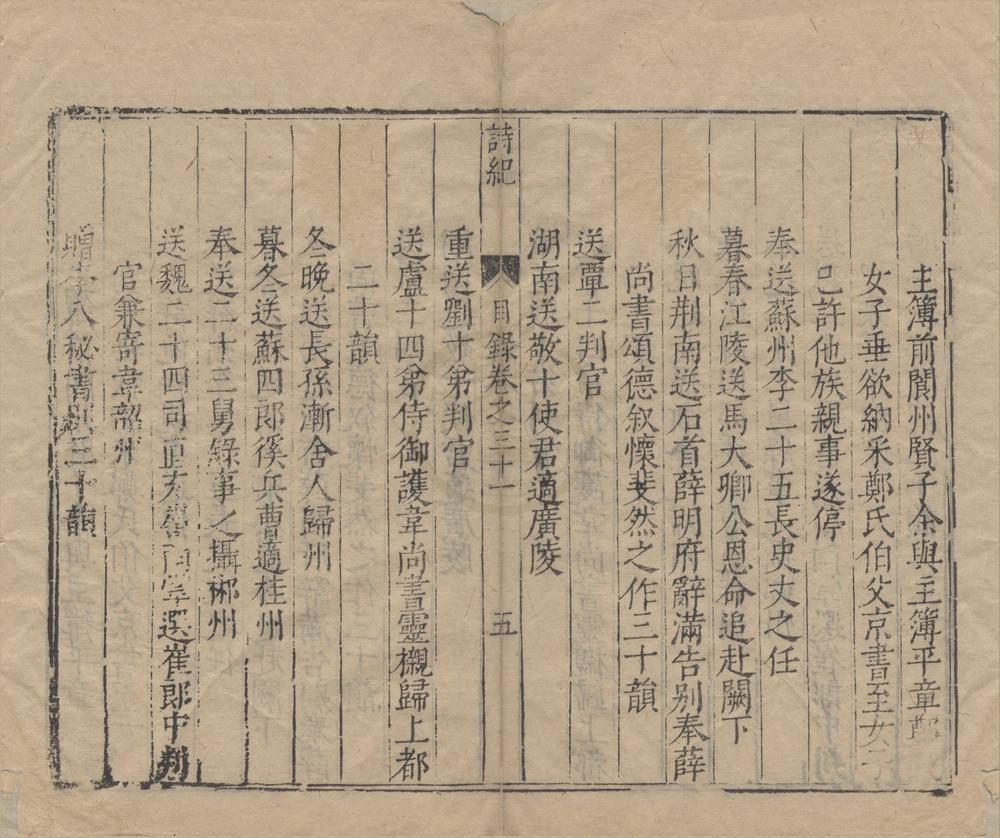 主簿前閬州賢子余與主簿平章鄭
女子垂欲納采鄭氏伯父京書至女子
已許他族親事遂停
奉送蘇州李二十五長史丈之任
暮春江陵送馬大卿公恩命追赴闕下
秋日荆南送石首薛明府辭滿告别奉薛
尚書頌德叙懷斐然之作三十韻
送覃二判官
湖南送敬十使君適廣陵
詩紀 目錄卷之三十一 五
重送劉十弟判官
送盧十四弟侍御護韋尚書靈櫬歸上都
二十韻
冬晚送長孫漸舍人歸州
暮冬送蘇四郎徯兵曹適桂州
奉送二十三舅錄事之攝郴州
送魏二十四司直充嶺南掌選崔郎中判
官兼寄韋韶州
贈李八秘書别三十韻